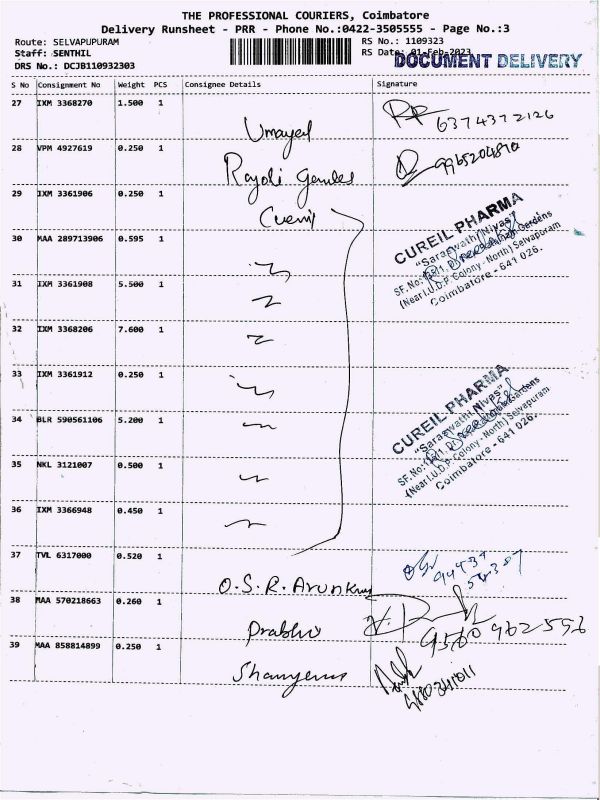 THE PROFESSIONAL COURIERS, Coimbatore
Delivery Runsheet - PRR - Phone No.:0422-3505555 - Page No.:3
Route: SELVAPUPURAM
Staff: SENTHIL
DRS No.: DCJB110932303
RS No.: 1109323
RS Date: 01-Feb-2023
DOCUMENT DELIVERY
S No Consignment No Weight PCS Consignee Details Signature
27 IXM 3368270 1.500 1
6374372126
28 VPM 4927619 0.250 1
9965204870
29 IXM 3361906 0.250 1
30 MAA 289713906 0.595 1
CUREIL PHARMA
"Saraswathi Nivas"
(Near I.U.D.P. Colony - North) Selvapuram
Coimbatore - 641 026.
31 IXM 3361908 5.500 1
32 IXM 3368206 7.600 1
33 IXM 3361912 0.250 1
34 BLR 590561106 5.200 1
CUREIL PHARMA
"Saraswathi Nivas"
(Near I.U.D.P. Colony - North) Selvapuram
Coimbatore - 641 026.
35 NKL 3121007 0.500 1
36 IXM 3366948 0.450 1
37 TVL 6317000 0.520 1
O.S.R. Arunkumar
38 MAA 570218663 0.260 1
Prabhu
39 MAA 858814899 0.250 1